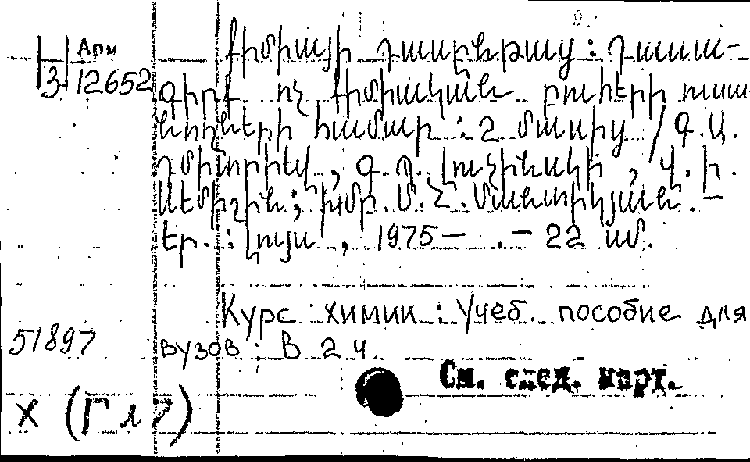 Арм
3 12652
Քիմիայի դասընթաց : Դասա-
գիրք ոչ քիմիական բուհերի ուսա
նողների համար : 2 մասից / Գ. Ա.
Դմիտրիև, Գ. Պ. Լուչինսկի, Վ. Ի.
Սեմիշին; Խմբ. Մ. Հ. Մանտիկյան. –
Եր. : Լույս, 1975– . – 22 սմ.
Курс химии : Учеб. пособие для
51897 вузов : В 2 ч
См. след. карт.
X (Гл7)